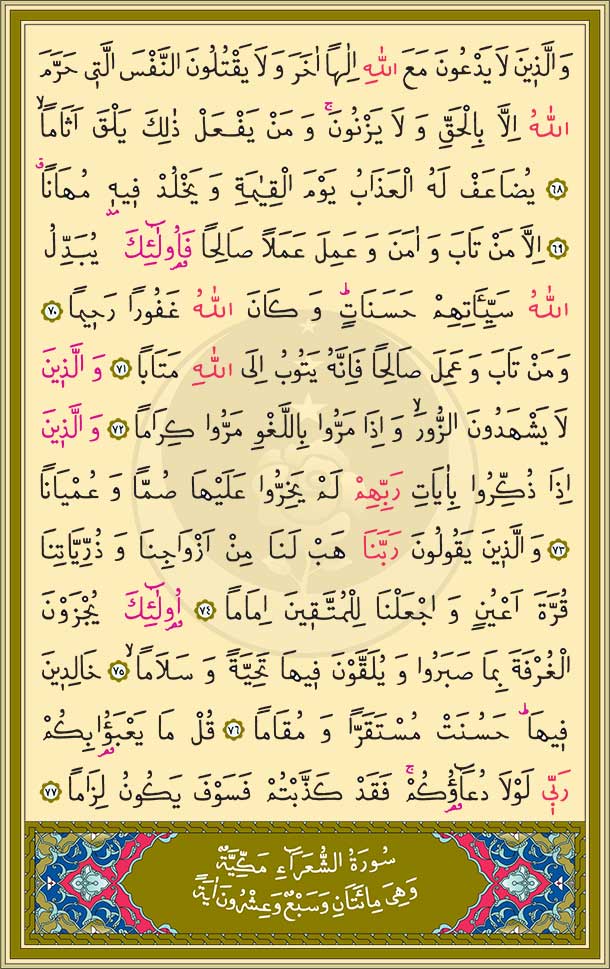 وَالَّذٖينَ لَا يَدْعُونَ مَعَ اللّٰهِ اِلٰهاً اٰخَرَ وَلَا يَقْتُلُونَ النَّفْسَ الَّتٖى حَرَّمَ
اللّٰهُ اِلَّا بِالْحَقِّ وَلَا يَزْنُونَۚ وَمَنْ يَفْعَلْ ذٰلِكَ يَلْقَ اَثَاماًۙ
﴿٦٨﴾ يُضَاعَفْ لَهُ الْعَذَابُ يَوْمَ الْقِيٰمَةِ وَيَخْلُدْ فٖيهٖ مُهَاناًۗ
﴿٦٩﴾ اِلَّا مَنْ تَابَ وَاٰمَنَ وَعَمِلَ عَمَلاً صَالِحاً فَاُو۬لٰٓئِكَ يُبَدِّلُ
اللّٰهُ سَيِّـَٔاتِهِمْ حَسَنَاتٍؕ وَكَانَ اللّٰهُ غَفُوراً رَحٖيماً ﴿٧٠﴾
وَمَنْ تَابَ وَعَمِلَ صَالِحاً فَاِنَّهُ يَتُوبُ اِلَى اللّٰهِ مَتَاباً ﴿٧١﴾ وَالَّذٖينَ
لَا يَشْهَدُونَ الزُّورَۙ وَاِذَا مَرُّوا بِاللَّغْوِ مَرُّوا كِرَاماً ﴿٧٢﴾ وَالَّذٖينَ
اِذَا ذُكِّرُوا بِاٰيَاتِ رَبِّهِمْ لَمْ يَخِرُّوا عَلَيْهَا صُماًّ وَعُمْيَاناً
﴿٧٣﴾ وَالَّذٖينَ يَقُولُونَ رَبَّنَا هَبْ لَنَا مِنْ اَزْوَاجِنَا وَذُرِّيَّاتِنَا
قُرَّةَ اَعْيُنٍ وَاجْعَلْنَا لِلْمُتَّقٖينَ اِمَاماً ﴿٧٤﴾ اُو۬لٰٓئِكَ يُجْزَوْنَ
الْغُرْفَةَ بِمَا صَبَرُوا وَيُلَقَّوْنَ فٖيهَا تَحِيَّةً وَسَلَاماًۙ ﴿٧٥﴾ خَالِدٖينَ
فٖيهَاؕ حَسُنَتْ مُسْتَقَراًّ وَمُقَاماً ﴿٧٦﴾ قُلْ مَا يَعْبَؤُ۬ا بِكُمْ
رَبّٖى لَوْلَا دُعَآؤُ۬كُمْۚ فَقَدْ كَذَّبْتُمْ فَسَوْفَ يَكُونُ لِزَاماً ﴿٧٧﴾
سُورَةُ الشُّعَرَاءِ مَكِّيَّةٌ
وَهِىَ مِائَتَانِ وَسَبْعٌ وَعِشْرُونَ اٰيَةً